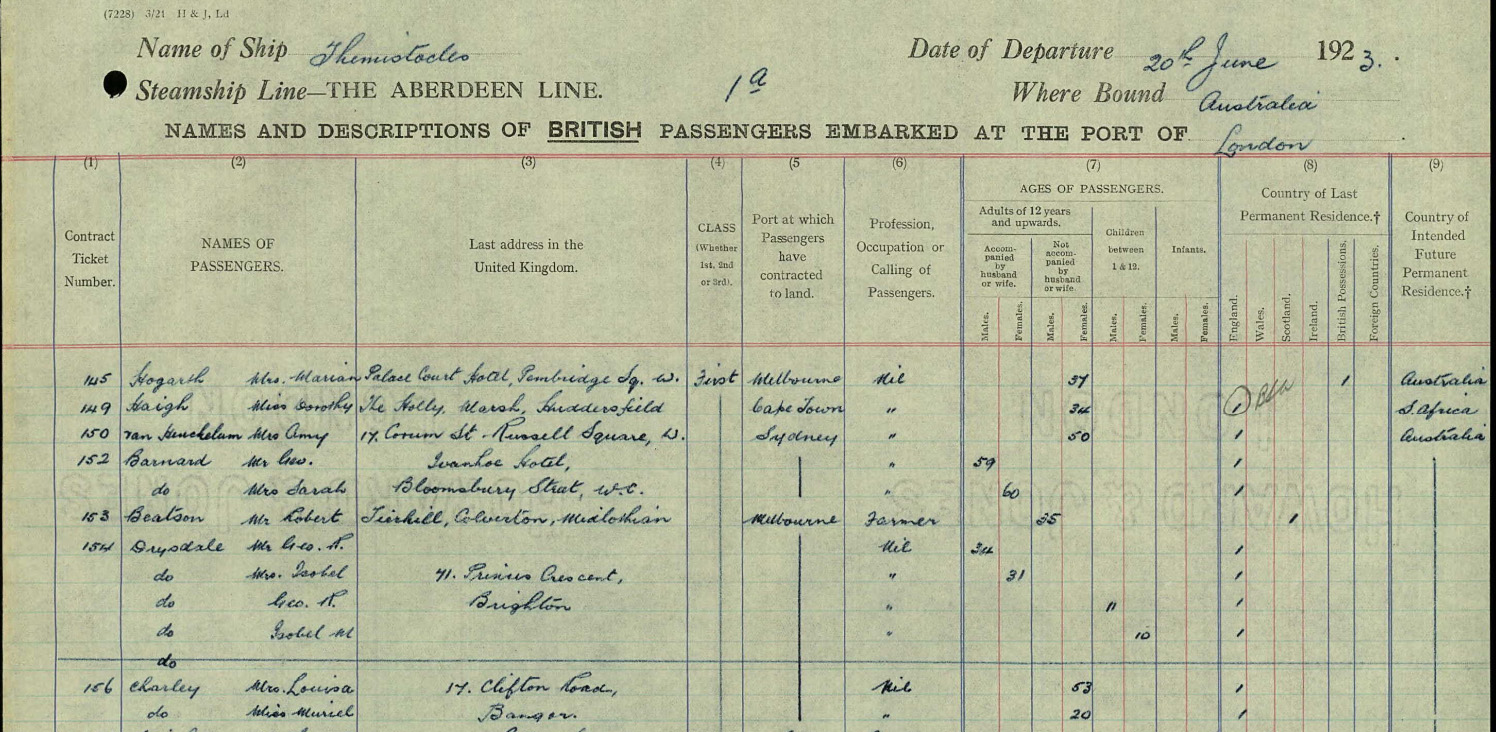 (7228) 3/21 H & J, Ld
Name of Ship Themistocles Date of Departure 20th June 1923.
Steamship Line—THE ABERDEEN LINE. 1a Where Bound Australia
NAMES AND DESCRIPTIONS OF BRITISH PASSENGERS EMBARKED AT THE PORT OF London
(1) (2) (3) (4) (5 (6) (7) (8) (9)
Contract Ticket Number.
NAMES OF PASSENGERS.
Last address in the United Kingdom.
CLASS (Whether 1st, 2nd or 3rd).
Port at which Passengers have contracted to land.
Profession, Occupation or Calling of Passengers.
AGES OF PASSENGERS.
Adults of 12 years and upwards.
Accompanied by husband or wife.
Not accompanied by husband or wife.
Children between 1 & 12.
Infants.
Males. Females. Males. Females. Males. Females. Males. Females.
Country of Last Permanent Residence.†
England. Wales. Scotland. Ireland. British Possessions. Foreign Countries.
Country of Intended Future Permanent Residence.†
145 Hogarth Mrs. Marian Palace Court Hotel, Pembridge Sq. W. First Melbourne Nil 57 1 Australia
149 Haigh Miss Dorothy The Holly, Marsh, Huddersfield Cape Town " 34 1 S. Africa
150 Mrs Amy 17. Corum St - Russell Square, W. Sydney " 50 1 Australia
152 Barnard Mr Geo. Ivanhoe Hotel, " 59 1
do Mrs Sarah Bloomsbury Street, W.C. " 60 1
153 Beatson Mr Robert Colverton, Midlothian Melbourne Farmer 35 1
154 Drysdale Mr Geo. R. Nil 34 1
do Mrs. Isobel 71. Princes Crescent, " 31 1
do Geo. R. Brighton " 11 1
do Isobel M " 10 1
do
156 Charley Mrs. Louisa 17. Clifton Road, Nil 53 1
do Miss Muriel Bangor. " 20 1